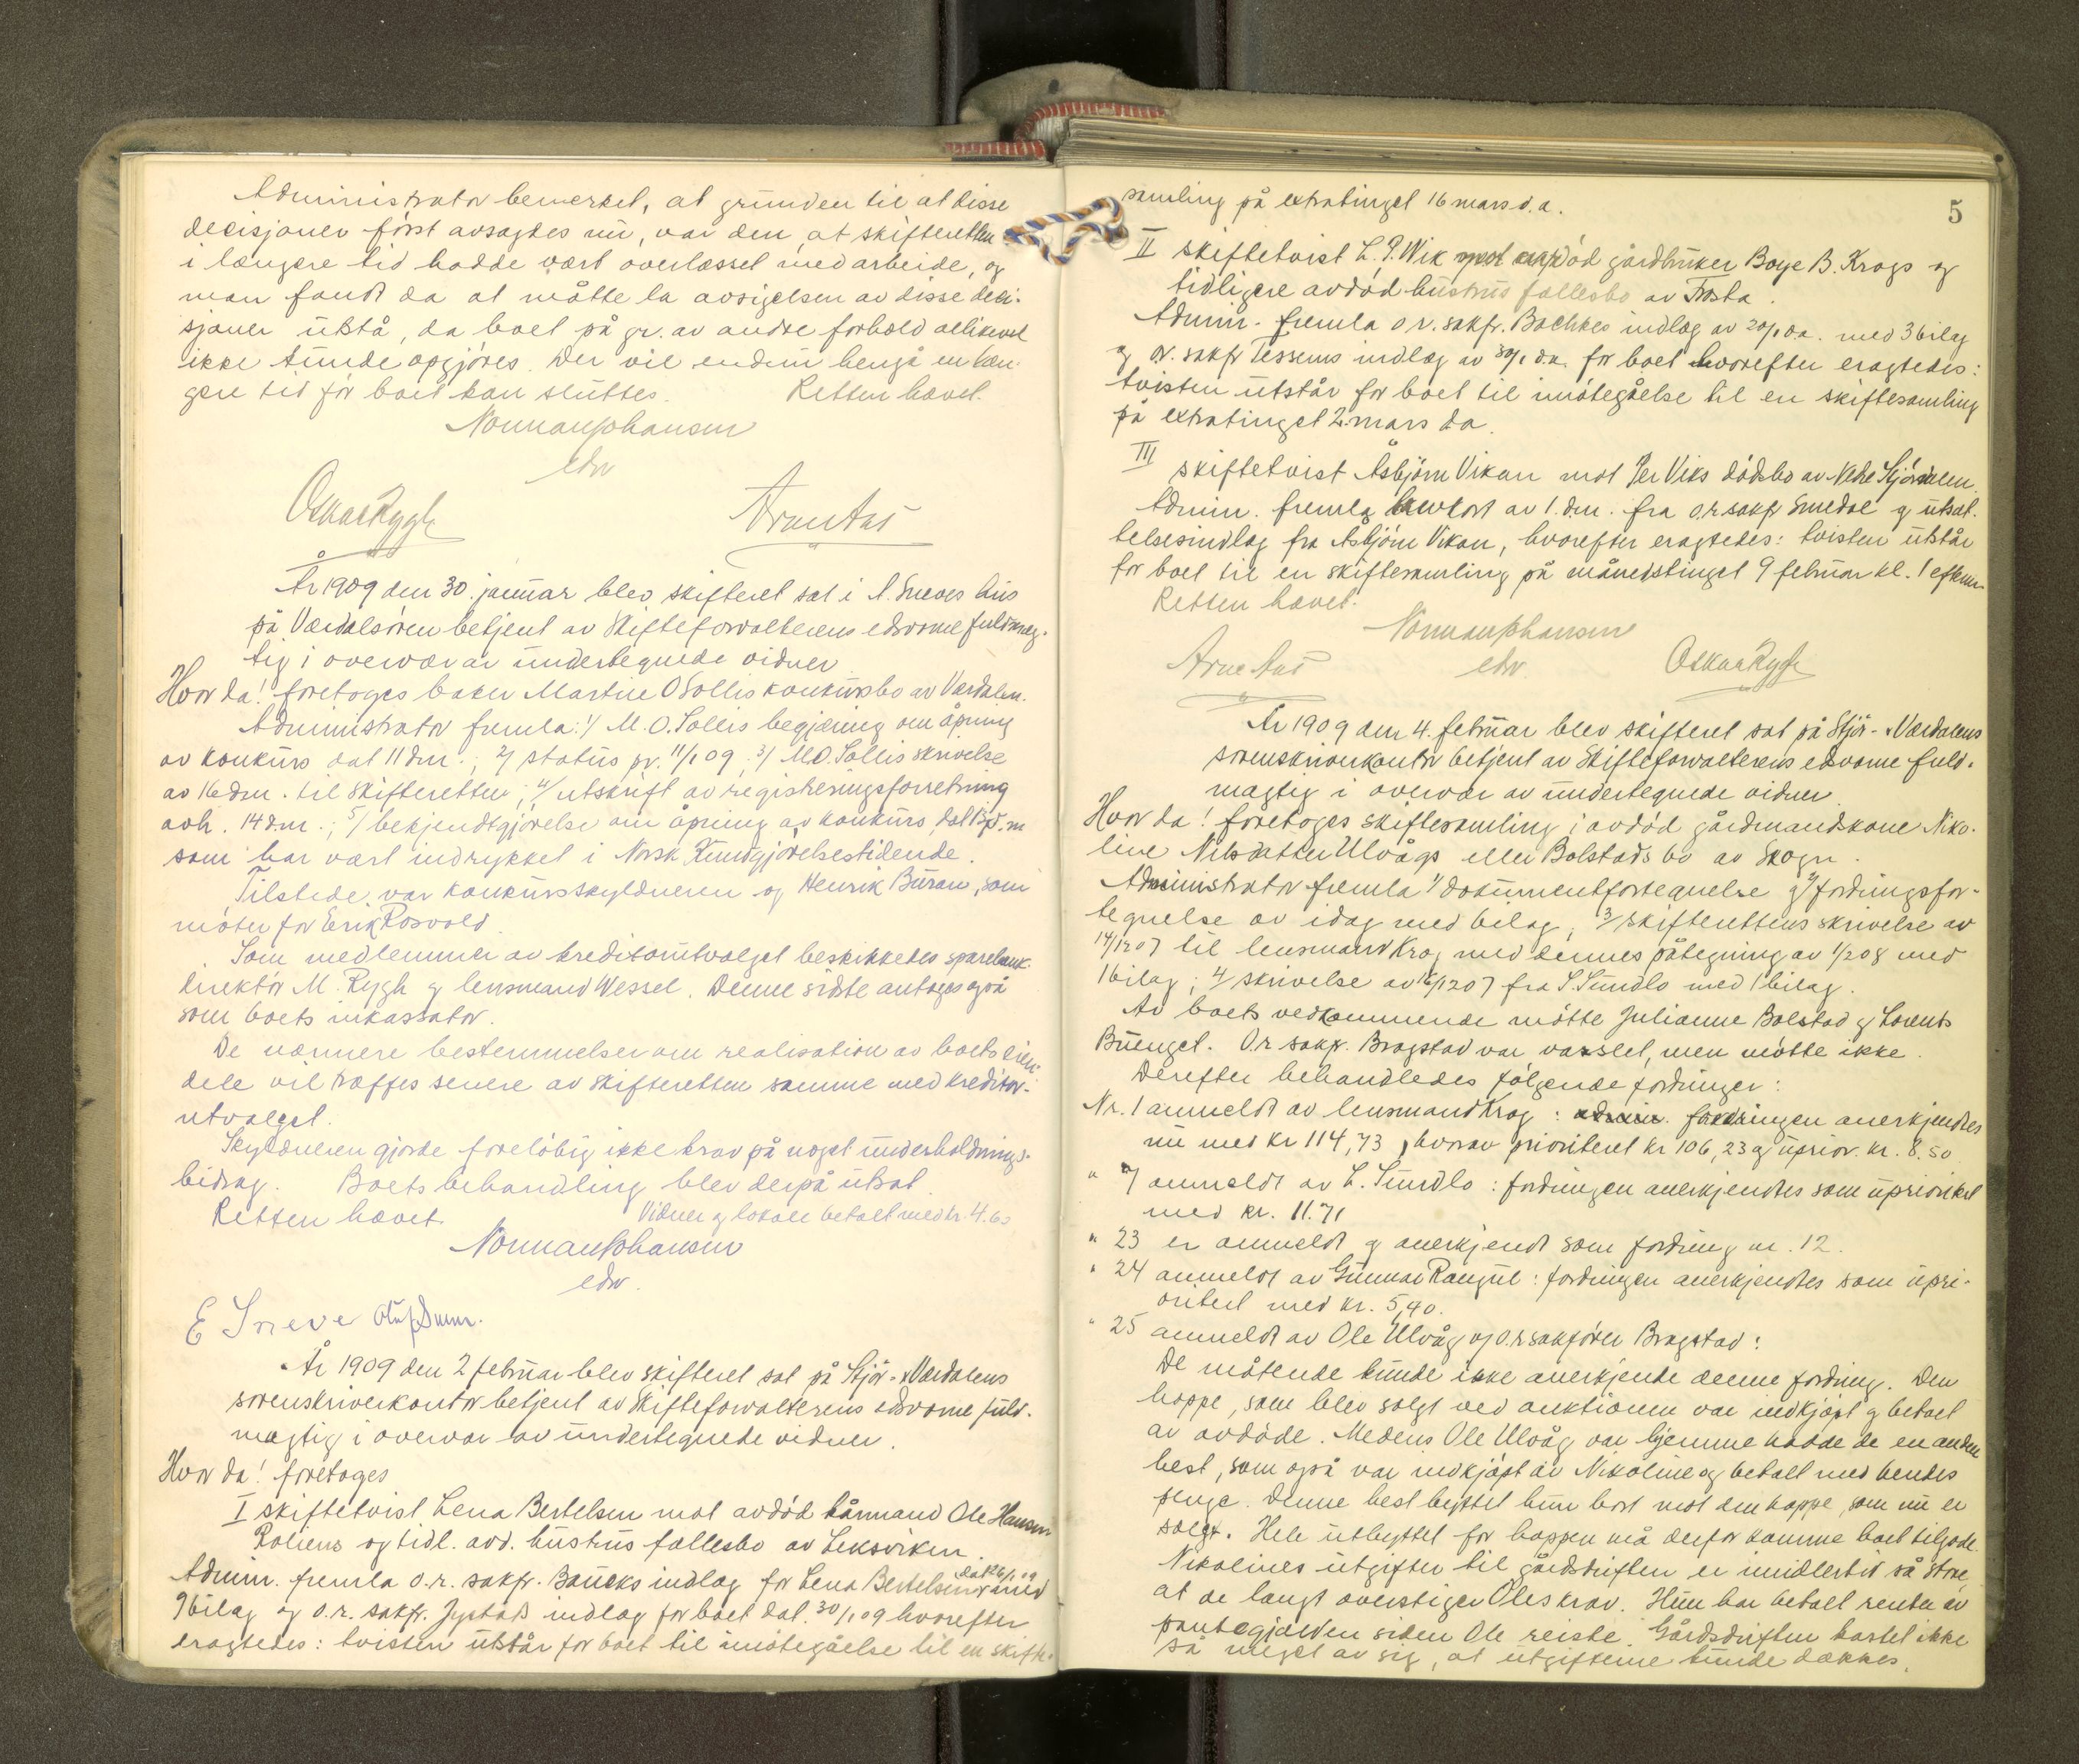 Administrator bemerket, at grunden til at disse
decisjoner først avsagdes nu, var den at skifteretten
i længere tid hadde vært overlæsset med arbeide, og
man fandt da at måtte la avsigelsen av disse deci-
sjoner utstå, da boet på gr. av andre forhold allikevel
ikke kunde opgjøres. Der vil endnu hengå en læn-
gere tid før boet kan sluttes. Retten hævet.
Norman Johansen
edv
Oskar Rygh Arne Aas
År 1909 den 30. januar blev skifteret sat i A. Sneves hus
på Værdalsøren betjent av Skifteforvalterens edsvorne fuldmæg-
tig i overvær av undertegnede vidner
Hvor da! foretoges baker Martin O Sollis konkursbo av Værdalen.
Administrator fremla: 1/ M. O. Sollis begjæring om åpning
av konkurs dat 11 dm.; 2/ status pr. 11/1 09; 3/ M.O. Sollis skrivelse
av 16 dm. til skifteretten; 4/ utskrift av registreringsforretning
avh. 14 d.m.; 5/ bekjendtgjørelse om åpning av konkurs dat d.m
som har vært indrykket i Norsk Kundgjørelsestidende.
Tilstede var konkursskyldneren og Henrik Buran, som
møter for Erik Rosvold.
Som medlemmer av kreditorutvalget beskikkedes sparebank-
direktør M. Rygh og lensmand Wessel. Denne sidste antoges også
som boets inkassator.
De nærmere bestemmelser om realisation av boets eien-
dele vil træffes senere av skifteretten samme med kreditor-
utvalget.
Skyldneren gjorde foreløbig ikke krav på noget underholdnings-
bidrag. Boets behandling blev derpå utsat.
Retten hævet. Vidner og lokale betalt med kr. 4.60
Norman Johansen
edv.
E Sneve Oluf
År 1909 den 2 februar blev skifteret sat på Stjør- & Værdalens
sorenskriverkontor betjent av Skifteforvalterens edsvorne fuld-
mægtig i overvær av undertegnede vidner.
Hvor da! foretoges
I skiftetvist Lena Bertelsen mot avdød kårmand Ole Hansen
Roliens og tidl. avd. hustrus fællesbo av Leksviken.
Admin. fremla o.r. sakf. Baucks indlæg for Lena Bertelsen dat 26/1 09 med
9 bilag og o.r. sakf. Jystads indlæg for boet dat. 30/1 09 hvorefter
eragtedes: tvisten utstår for boet til imøtegåelse til en skifte-
5
samling på extratinget 16 mars d.a.
II skiftetvist L. P. Wik mot avdød gårdbruker Boye B. Krogs og
tidligere avdød hustrus fællesbo av Frosta.
Admin. fremla o.r. sakf. Bachkes indlæg av 20/1 d.a. med 3 bilag
og o.r. sakf Tessems indlæg av 30/1 d.a. for boet hvorefter eragtedes:
tvisten utstår for boet til imøtegåelse til en skiftesamling
på extratinget 2. mars da.
III skiftetvist Åsbjørn Vikan mot Per Viks dødsbo av Nedre Stjørdalen.
Admin. fremla brevkort av 1. dm. fra o.r sakf Smedal og utsæt-
telsesindlæg fra Asbjørn Vikan, hvorefter eragtedes: tvisten utstår
for boet til en skiftesamling på månedstinget 9 februar kl. 1 efterm
Retten hævet.
Norman Johansen
Arne Aas edv. Oskar Rygh
År 1909 den 4. februar blev skifteret sat på Stjør- & Værdalens
sorenskriverkontor betjent av Skifteforvalterens edsvorne fuld-
mægtig i overvær av undertegnede vidner.
Hvor da! foretoges skiftesamling i avdød gårdmandskone Niko-
line Nilsdatter Ulvågs eller Bolstads bo av Skogn.
Administrator fremla 1/ dokumentfortegnelse og 2/ fordringsfor-
tegnelse av idag med bilag, 3/ skifterettens skrivelse av
14/12 07 til lensmand Krog med dennes påtegning av 1/2 08 med
1 bilag; 4/ skrivelse av 16/12 07 fra S. Sundlo med 1 bilag.
Av boets vedkommende møtte Julianne Bolstad og Lorents
Buenget. O.r sakf. Bragstad var varslet, men møtte ikke.
Derefter behandledes følgende fordringer:
Nr. 1 anmeldt av lensmand Krog: admin. fordringen anerkjendtes
nu med kr 114,73, hvorav prioriteret kr 106,23 og uprior. kr. 8.50
" 7 anmeldt av L. Sundlo: fordringen anerkjendtes som uprioritet
med kr. 11.71
" 23 er anmeldt og anerkjendt som fordring nr. 12.
" 24 anmeldt av Gunnar Rangul: fordringen anerkjendtes som upri-
oritert med kr. 5,40.
" 25 anmeldt av Ole Ulvåg v/ o.r sakfører Bragstad:
De møtende kunde ikke anerkjende denne fordring. Den
hoppe, som blev solgt ved auktionen var indkjøpt og betalt
av avdøde. Medens Ole Ulvåg var hjemme hadde de en anden
hest, som også var indkjøpt av Nikoline og betalt med hendes
penge. Denne hest byttet hun bort mot den hoppe, som nu er
solgt. Hele utbyttet for hoppen må derfor komme boet tilgode.
Nikolines utgifter til gårdsdriften er imidlertid så store
at de langt overstiger Oles krav. Hun har betalt renter av
pantegjælden siden Ole reiste. Gårdsdriften kastet ikke
så meget av sig, at utgifterne kunde dækkes.